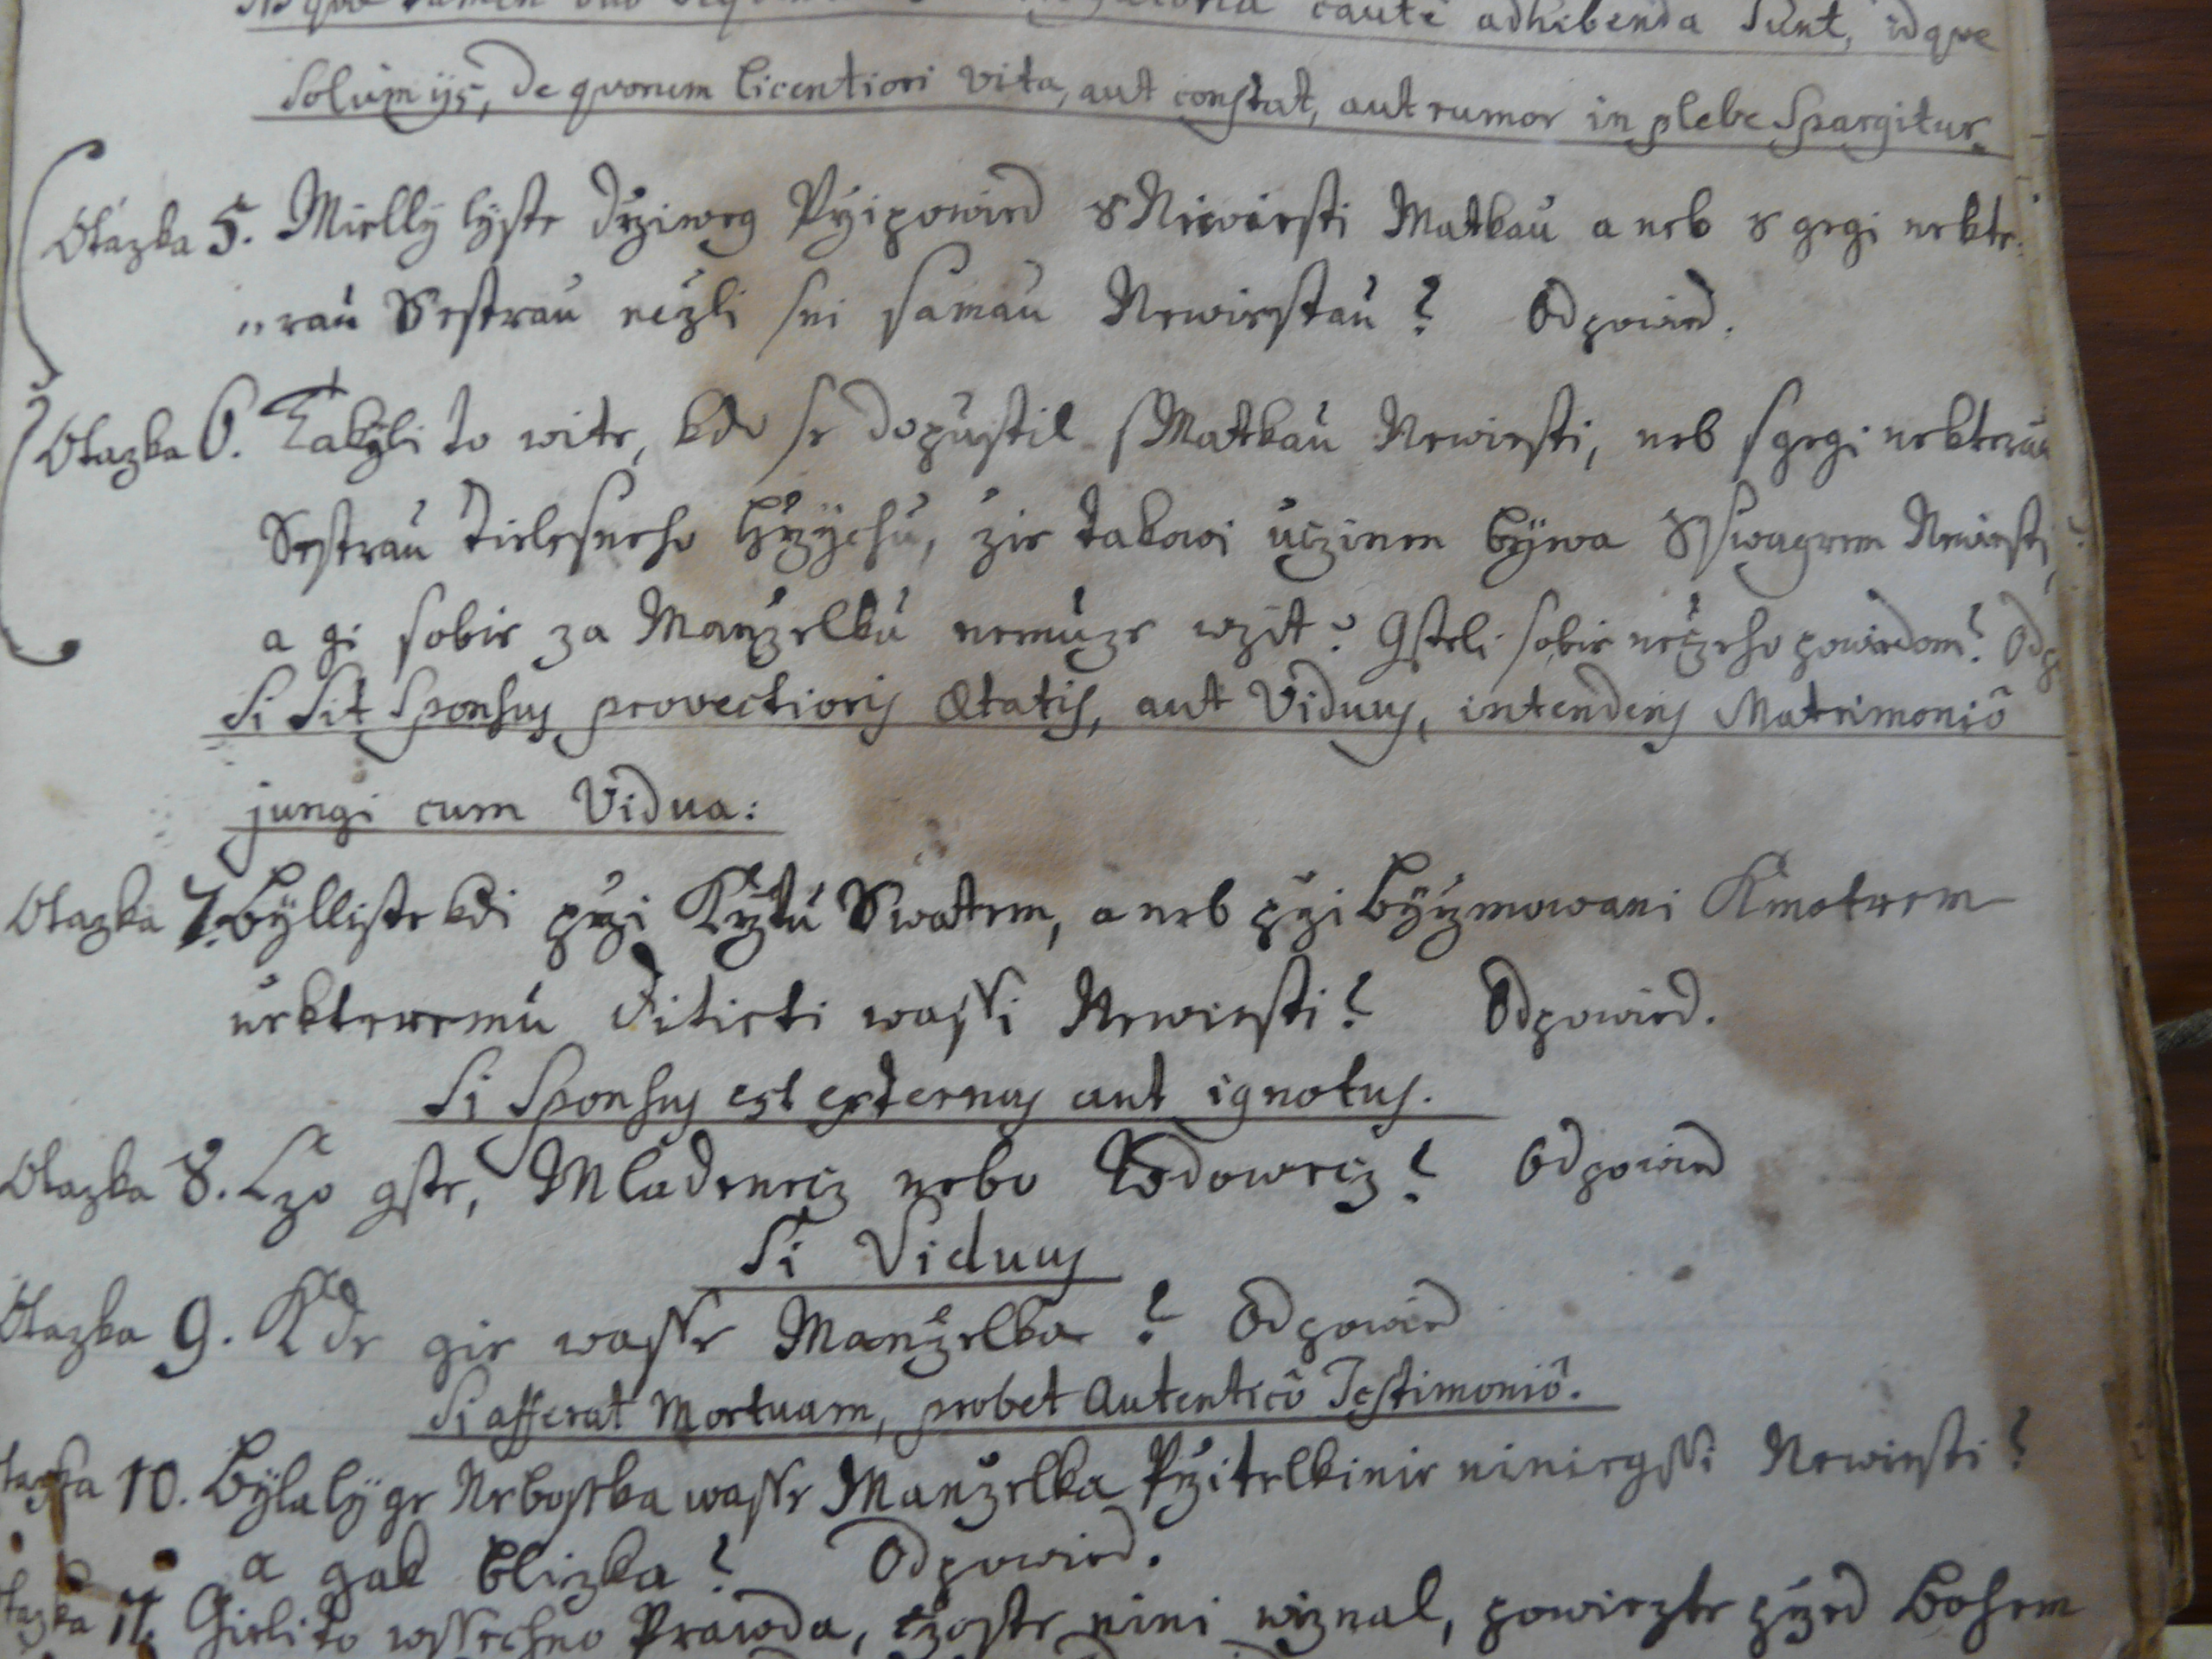 caute adhibenda sunt, idque
solum ijs, de quorum licentiori vita, aut constat, aut rumor in plebe spargitur.
Otazka 5. Mielly lyste drziweg Przipowied s Newiesti Matkau aneb s gegi nekte„
„rau Sestrau nežli sni samau Newiestau? Odpowied.
Otazka 6. Takyli to wite, kdo se dopustil s Matkau Newiesti, neb s gegi nekterau
Sestrau Tielesneho Hrzychu, zie takowi uczinen bywa Sswagrem Newiesti,
a gi sobie za Manzelku nemuze wzit? Gsteli sobie neczeho powiedom? Odp
Si sit Sponsus provectioris Ætatis, aut Viduus, intendens Matrimoniô
jungi cum Vidua:
Otazka 7. Bylliste kdi przi Krztu Swatem, aneb przi Byrzmowani Kmotrem
nekteremu Ditieti wassi Newiesti? Odpowied.
Si Sponsus est externus aut ignotus.
Otazka 8. Czo gste, Mladenecz nebo Wdowecz? Odpowied
Si Viduus
Otazka 9. Kde gie wasse Manželka? Odpowied
Si afferat Mortuam, probet Autenticô Testimoniô.
Otazka 10. Byla ly ge Neboska wasse Manželka Przitelkinie niniegssi Newiesti?
a gak blizka? Odpowied.
Otazka 11. Gieli to wssechno Prawda, czoste nini wiznal, powiezte przed Bohem